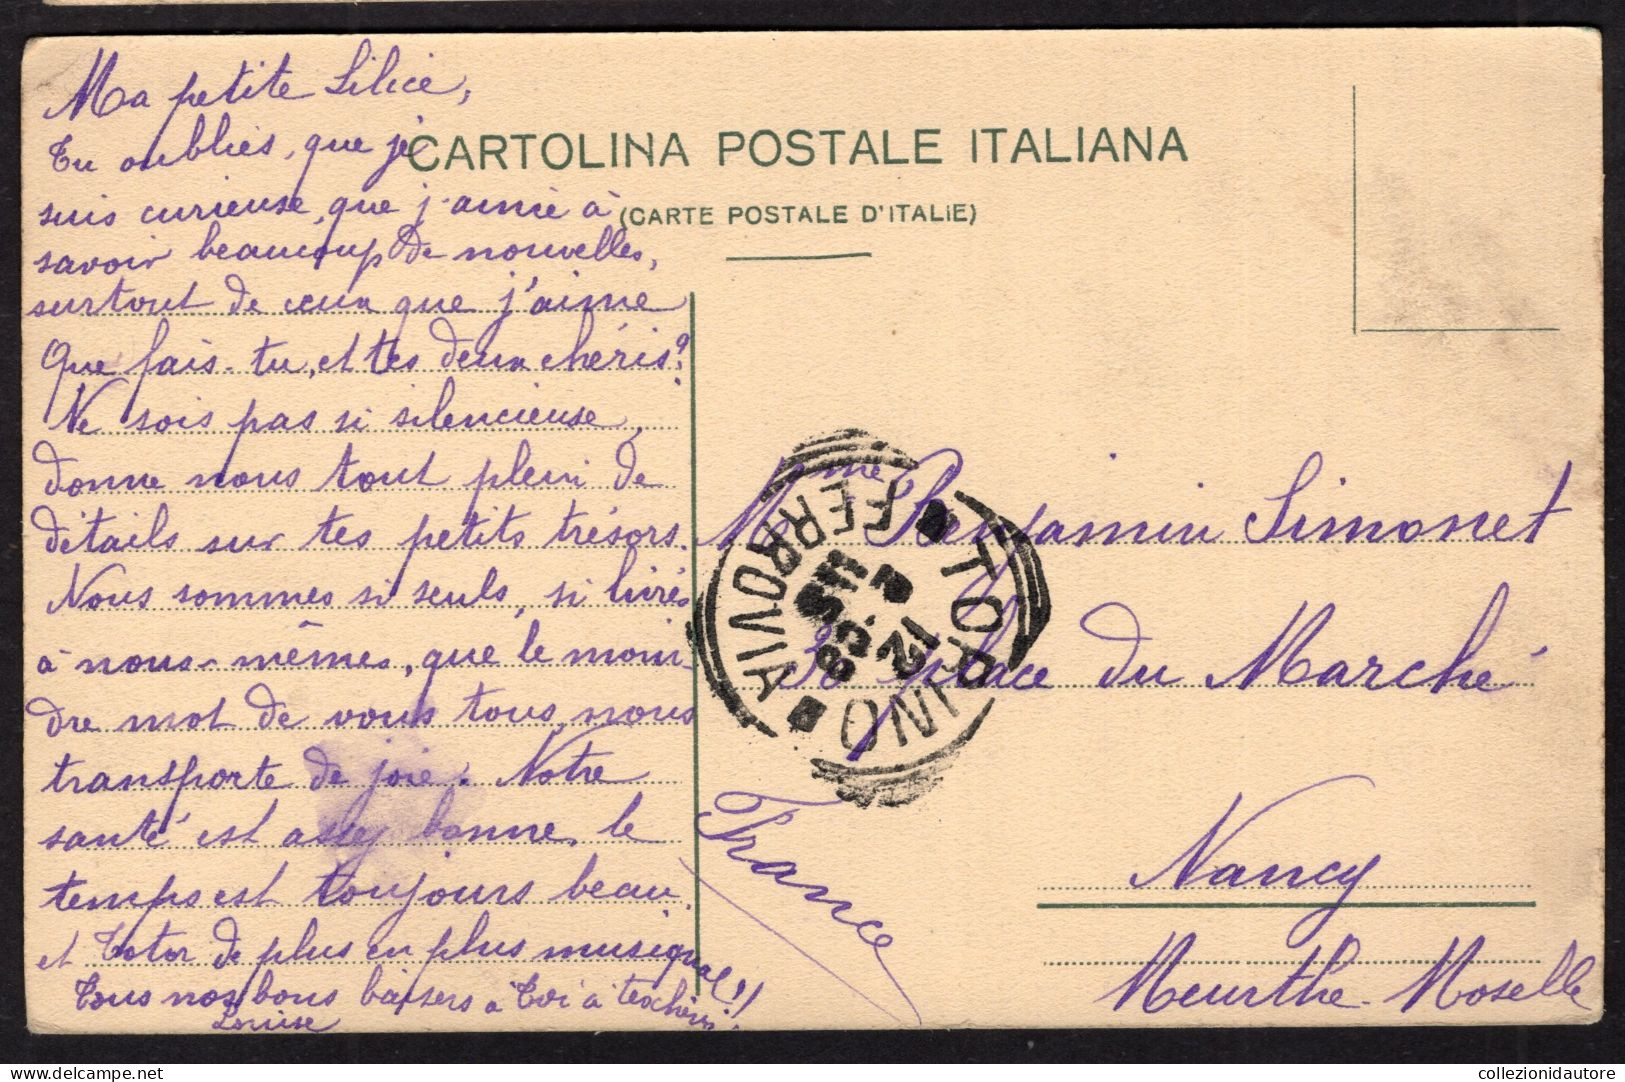 Ma petite Lilice,
Tu oublies, que je
suis curieuse, que j'aime à
savoir beaucoup de nouvelles,
surtout de ceux que j'aime
Que fais-tu, et tes deux chéris?
Ne sois pas si silencieuse,
donne nous tout plein de
détails sur tes petits trésors.
Nous sommes si seuls, si livrés
à nous-mêmes, que le moin-
dre mot de vous tous, nous
transporte de joie. Notre
santé est assez bonne, le
temps est toujours beau,
et Totor de plus en plus musiqual!!
Tous nos bons baisers à Toi à tes chéris!
Louise
CARTOLINA POSTALE ITALIANA
(CARTE POSTALE D'ITALIE)
TORINO
FERROVIA
12
Mme Benjamin Simonet
place du Marché
Nancy
Meurthe-Moselle
France
delcampe.net
collezionidautore